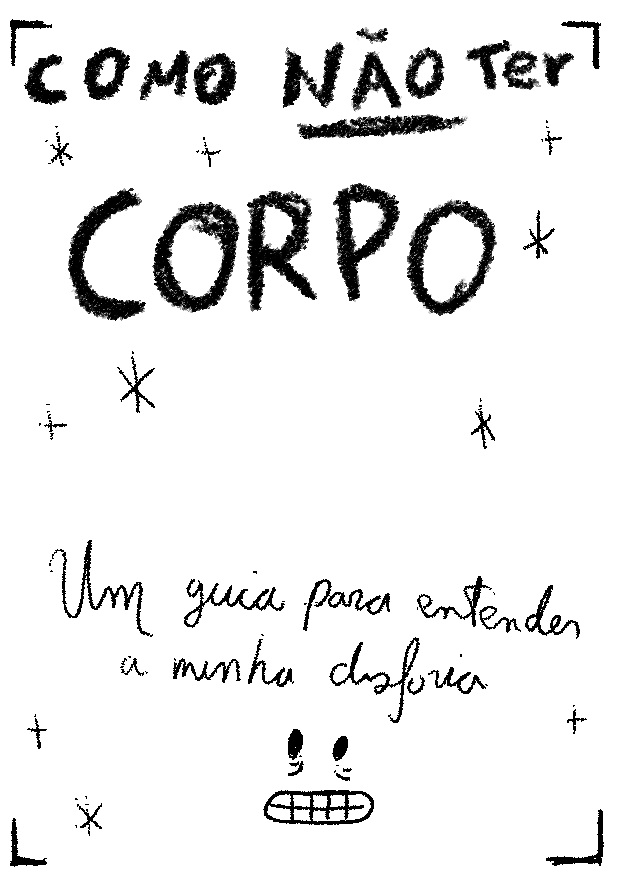 COMO NÃO Ter
CORPO
Um guia para entender
a minha disforia